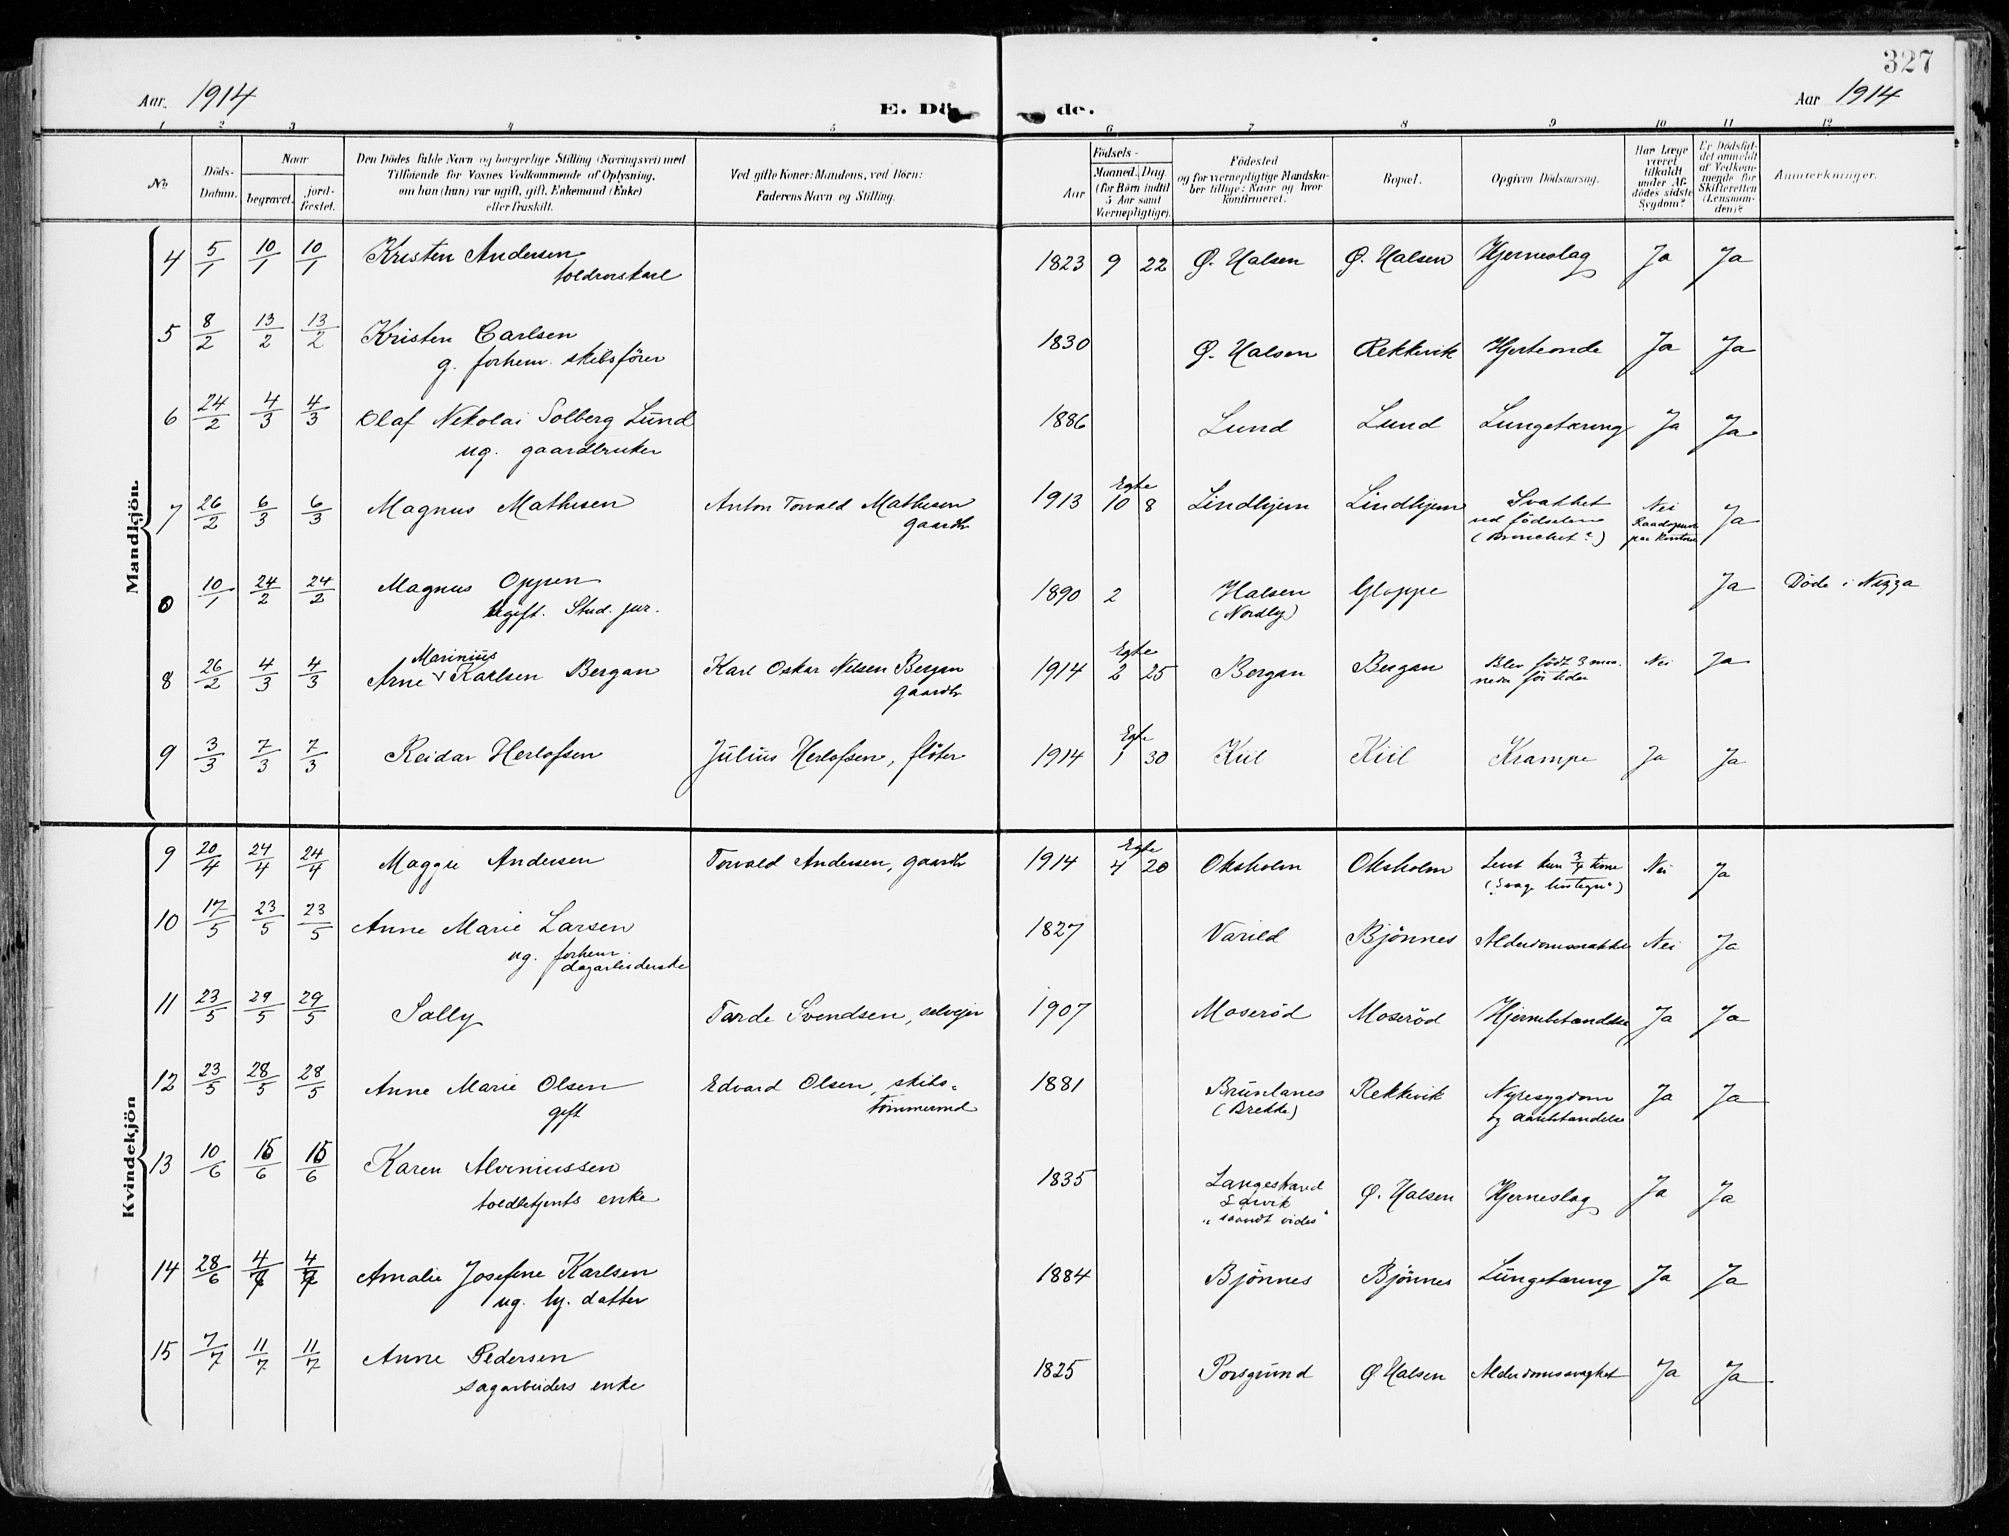 327
Aar. 1914
E. Dö de.
Aar 1914
1 2 3 4 5 6 7 8 9 10 11 12
No
Döds-Datum.
Naar
begravet.
jord-fæstet.
Den Dödes fulde Navn og borgerlige Stilling (Næringsvei) med
Tilföiende for Voxnes Vedkommende af Oplysning,
om han (hun) var ugift, gift, Enkemand (Enke)
eller fraskilt.
Ved gifte Koner: Mandens, ved Börn:
Faderens Navn og Stilling.
Födsels-
Aar
Maaned. Dag
(for Börn indtil
5 Aar samt
Værnepligtige).
Födested
og for værnepligtige Mandska-
ber tillige: Naar og hvor
konfirmeret.
Bopæl.
Opgiven Dödsaarsag.
Har Læge
været
tilkaldt
under Af-
dödes sidste
Sygdom?
Er Dödsfal-
det anmeldt
af Vedkom-
mende for
Skifteretten
(Lensman-
den)?
Anmærkninger.
Mandkjön.
4 5/1 10/1 10/1 Kristen Andersen 1823 9 22 Ø. Halsen Ø. Halsen Hjerneslag Ja Ja
5 8/2 13/2 13/2 Kristen Carlsen 1830 Ø. Halsen Rekkevik Hjerteonde Ja Ja
g. forhenv. skibsfører
6 24/2 4/3 4/3 Olaf Nikolai Solberg Lund 1886 Lund Lund Lungetæring Ja Ja
ug. gaardbruker
7 26/2 6/3 6/3 Magnus Mathisen Anton Torvald Mathisen 1913 Egte 10 8 Lindhjem Lindhjem Svakhet Nei Ja
gaardbr ved fødselen
(Bronchit?)
0 10/1 24/2 24/2 Magnus Oppen 1890 2 Halsen Gloppe Ja Døde i Nizza
ugift. Stud. jur. (Nordby)
8 26/2 4/3 4/3 Arne Marinius Karlsen Bergan Karl Oskar Nilsen Bergan 1914 Egte 2 25 Bergan Bergan Blev født 3 maa- Nei Ja
gaardbr neder før tiden
9 3/3 7/3 7/3 Reidar Herlofsen Julius Herlofsen, fløter 1914 Egte 1 30 Kiil Kiil Krampe Ja Ja
Kvindekjön
9 20/4 24/4 24/4 Maggie Andersen Torvald Andersen, gaardbr 1914 Egte 4 20 Oksholm Oksholm Levet kun 3/4 time Nei Ja
10 17/5 23/5 23/5 Anne Marie Larsen 1827 Varild Bjønnes Alderdomssvakhet Nei Ja
ug. forhenv.
dagarbeiderske
11 23/5 29/5 29/5 Solly Tarde Svendsen, selveier 1907 Moserød Moserød Hjernebetændelse Ja Ja
12 23/5 28/5 28/5 Anne Marie Olsen Edvard Olsen, skibs- 1881 Brunlanes Rekkevik Nyresygdom Ja Ja
gift tømmermd (Brekke)
13 10/6 15/6 15/6 Karen Alviniussen 1835 Langestrand Ø. Halsen Hjerneslag Ja Ja
toldbetjents enke Larvik
"saavidt vides"
14 28/6 4/7 4/7 Amalie Josefine Karlsen 1884 Bjønnes Bjønnes Lungetæring Ja Ja
ug. hj. datter
15 7/7 11/7 11/7 Anne Pedersen 1825 Porsgrund Ø Halsen Alderdomssvaghet Ja Ja
sagarbeiders enke